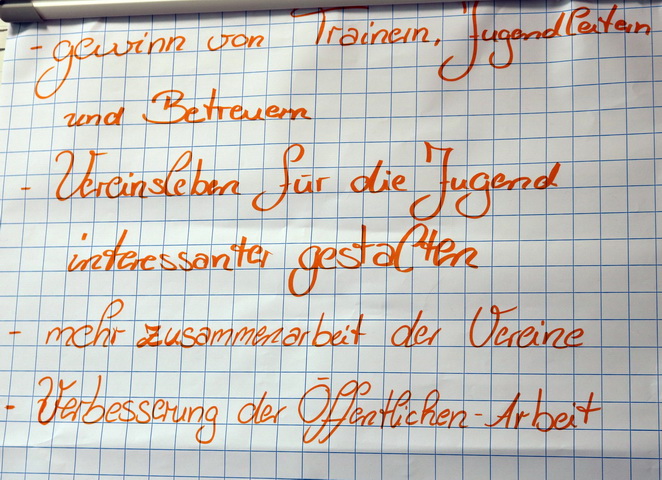 - gewinn von Trainern, Jugendleitern
und Betreuern
- Vereinsleben für die Jugend
interessanter gestalten
- mehr zusammenarbeit der Vereine
- Verbesserung der Öffentlichen-Arbeit